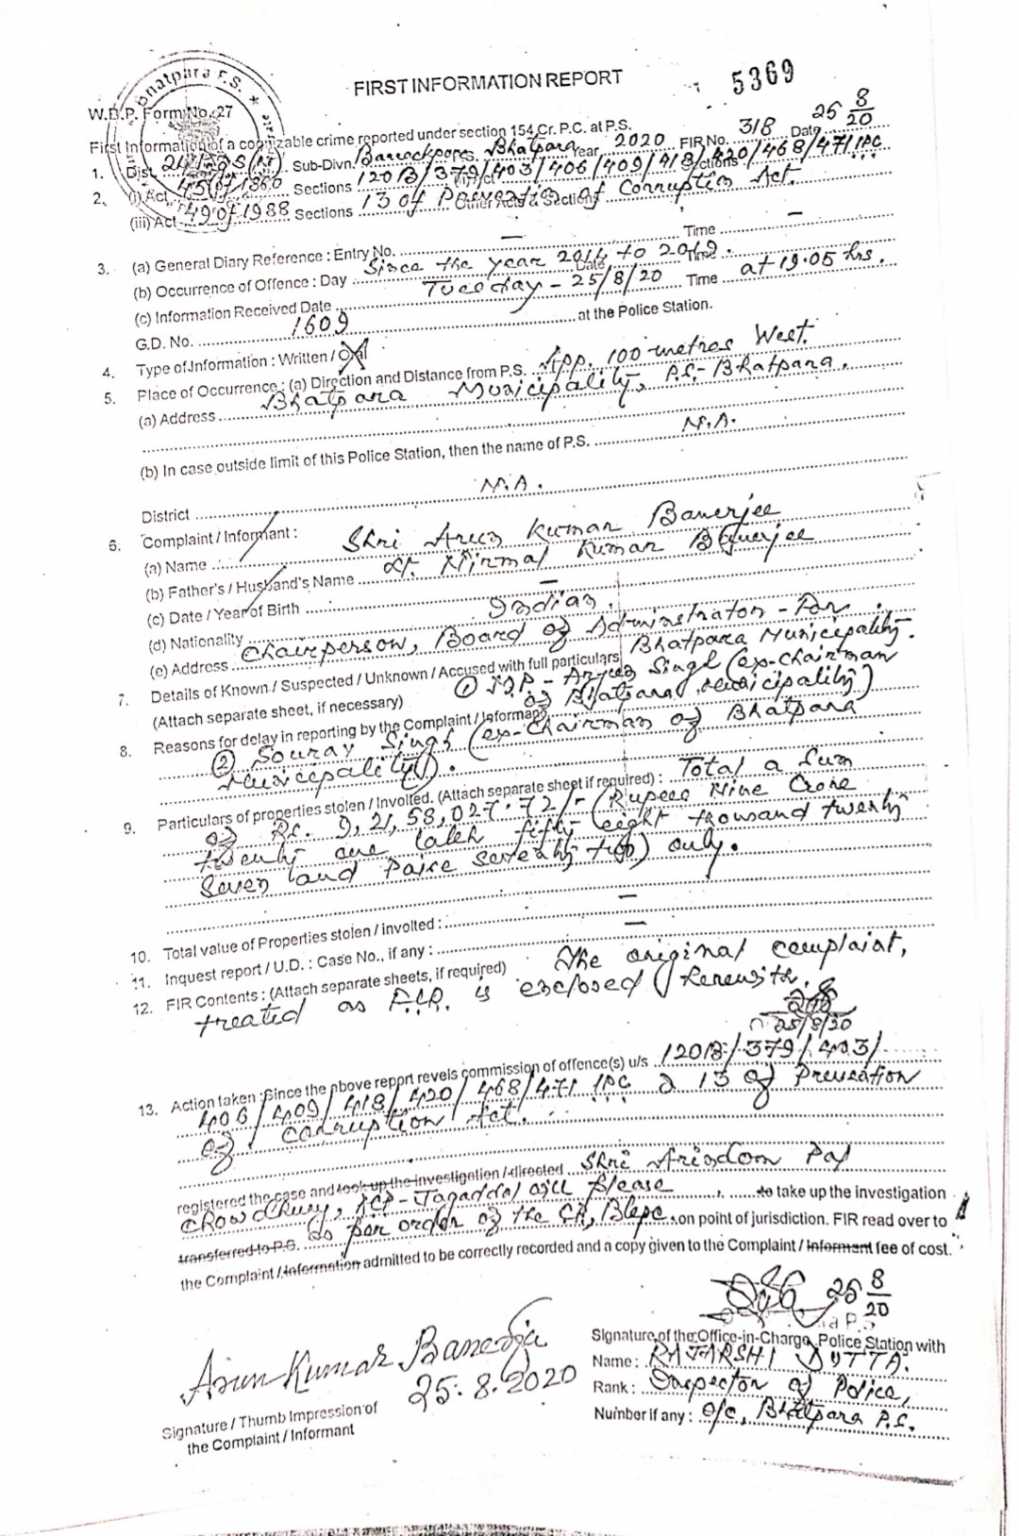 Bhatpara P.S.
FIRST INFORMATION REPORT
5369
W.B.P. Form No. 27
First Information of a cognizable crime reported under section 154 Cr. P.C. at P.S.
1. Dist. Sub-Divn. Barrackpore P.S. Bhatpara Year 2020 FIR No. 318 Date 25 8/20
2. (i) Act 45 of 1860 Sections 120B/379/403/406/409/418/420/468/471 IPC
(iii) Act 49 of 1988 Sections 13 of Prevention of Corruption Act. Other Acts & Sections
3. (a) General Diary Reference : Entry No. — Time —
(b) Occurrence of Offence : Day Since the year 2014 to 2019. Date Time
(c) Information Received Date Tuesday - 25/8/20 Time at 19.05 hrs.
G.D. No. 1609 at the Police Station.
4. Type of Information : Written / Oral
5. Place of Occurrence : (a) Direction and Distance from P.S. App. 100 metres West.
(a) Address Bhatpara Municipality, P.S.- Bhatpara.
(b) In case outside limit of this Police Station, then the name of P.S. N.A.
District N.A.
6. Complaint / Informant :
(a) Name Shri Arun Kumar Banerjee
(b) Father's / Husband's Name Lt. Nirmal Kumar Banerjee
(c) Date / Year of Birth —
(d) Nationality Indian.
(e) Address Chairperson, Board of Administrator - For Bhatpara Municipality.
7. Details of Known / Suspected / Unknown / Accused with full particulars
(Attach separate sheet, if necessary) ① Arjun Singh (ex-chairman of Bhatpara Municipality)
8. Reasons for delay in reporting by the Complaint / Informant
② Sourav Singh (ex-Chairman of Bhatpara
Municipality).
9. Particulars of properties stolen / Involted. (Attach separate sheet if required) : Total a sum
of Rs. 9,21,58,027.72/- (Rupees Nine Crore
twenty one lakh fifty eight thousand twenty
seven and Paise seventy two) only.
10. Total value of Properties stolen / involted : —
11. Inquest report / U.D. : Case No., if any : —
12. FIR Contents : (Attach separate sheets, if required) The original complaint,
treated as F.I.R. is enclosed herewith.
25/8/20
13. Action taken :Since the above report revels commission of offence(s) u/s 120B/379/403/
406/409/418/420/468/471 IPC & 13 of Prevention
of Corruption Act.
registered the case and took up the investigation / directed Shri Arindom Pal
Chowdhury, ACP-Jagaddal will please to take up the investigation
transferred to P.S. as per order of the CP, Bkpc. on point of jurisdiction. FIR read over to
the Complaint / Information admitted to be correctly recorded and a copy given to the Complaint / Informant fee of cost.
25 8/20
Arun Kumar Banerjee
25.8.2020
Signature / Thumb Impression of
the Complaint / Informant
Signature of the Office-in-Charge, Police Station with
Name : RAJARSHI DUTTA.
Rank : Inspector of Police,
Number if any : O/C, Bhatpara P.S.